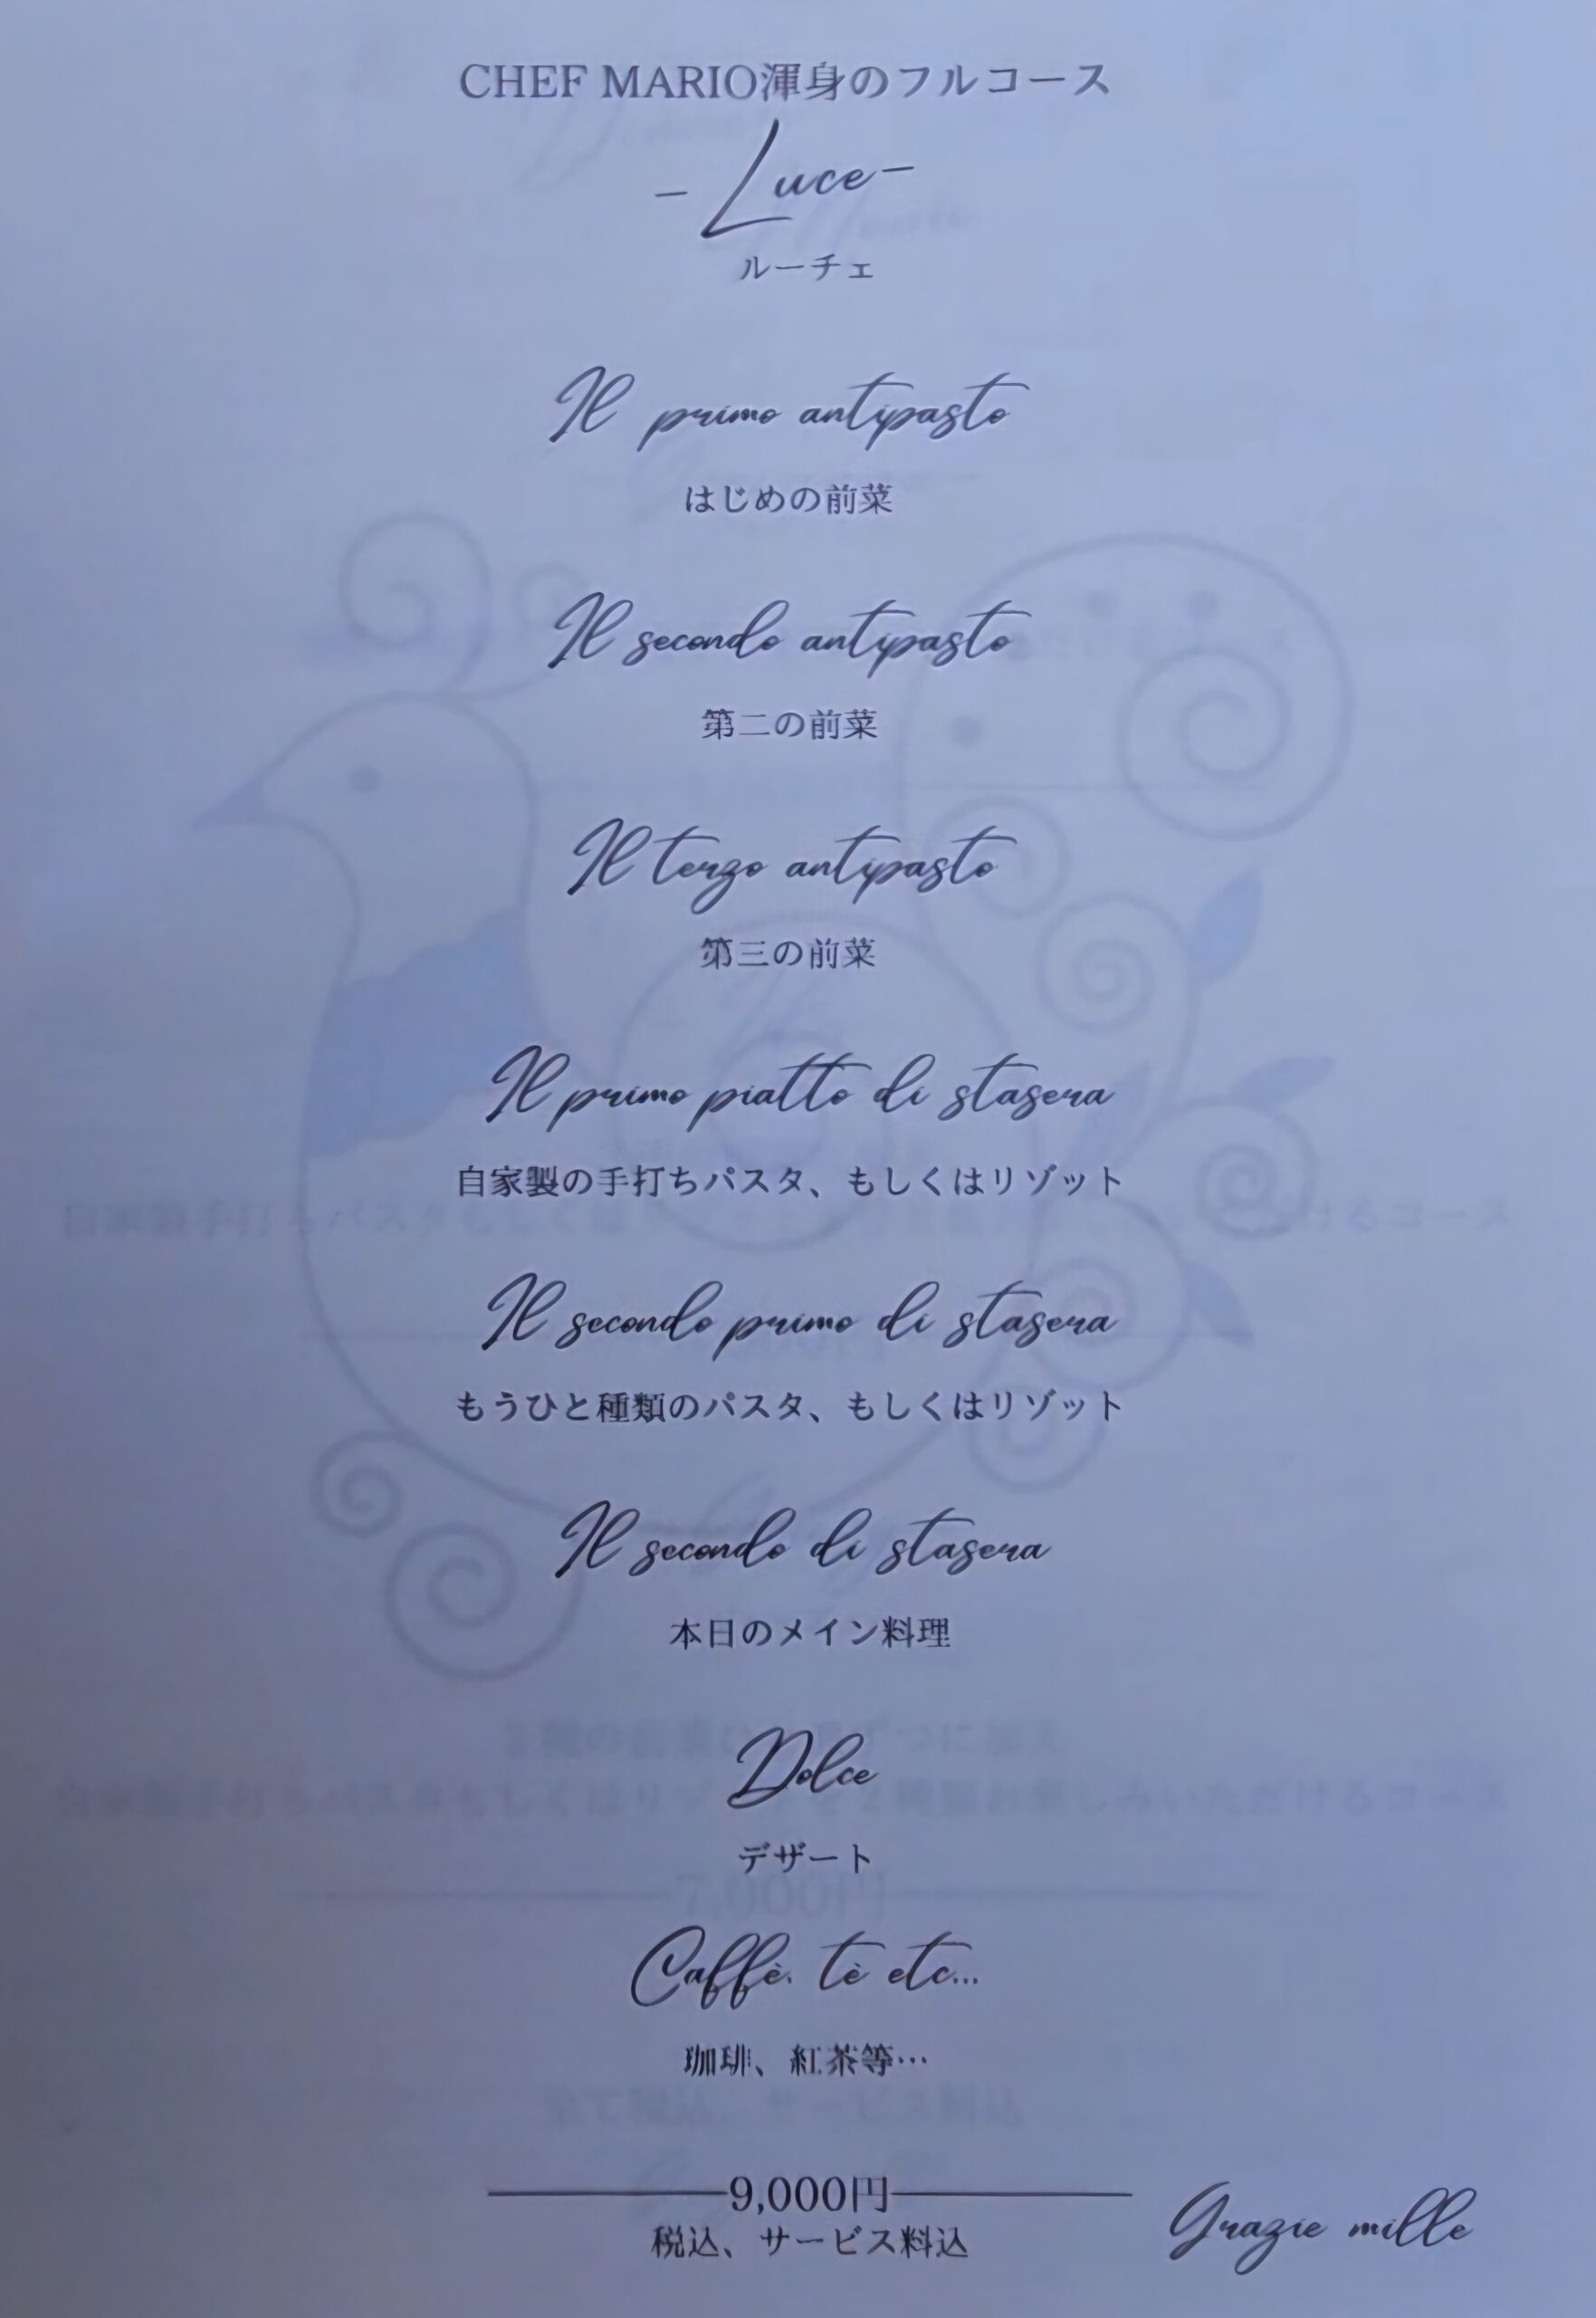 CHEF MARIO渾身のフルコース
- Luce -
ルーチェ
Il primo antipasto
はじめの前菜
Il secondo antipasto
第二の前菜
Il terzo antipasto
第三の前菜
Il primo piatto di stasera
自家製の手打ちパスタ、もしくはリゾット
Il secondo primo di stasera
もうひと種類のパスタ、もしくはリゾット
Il secondo di stasera
本日のメイン料理
Dolce
デザート
7,000円
Caffè, tè etc...
珈琲、紅茶等…
全て税込、サービス料込
9,000円
税込、サービス料込
Grazie mille